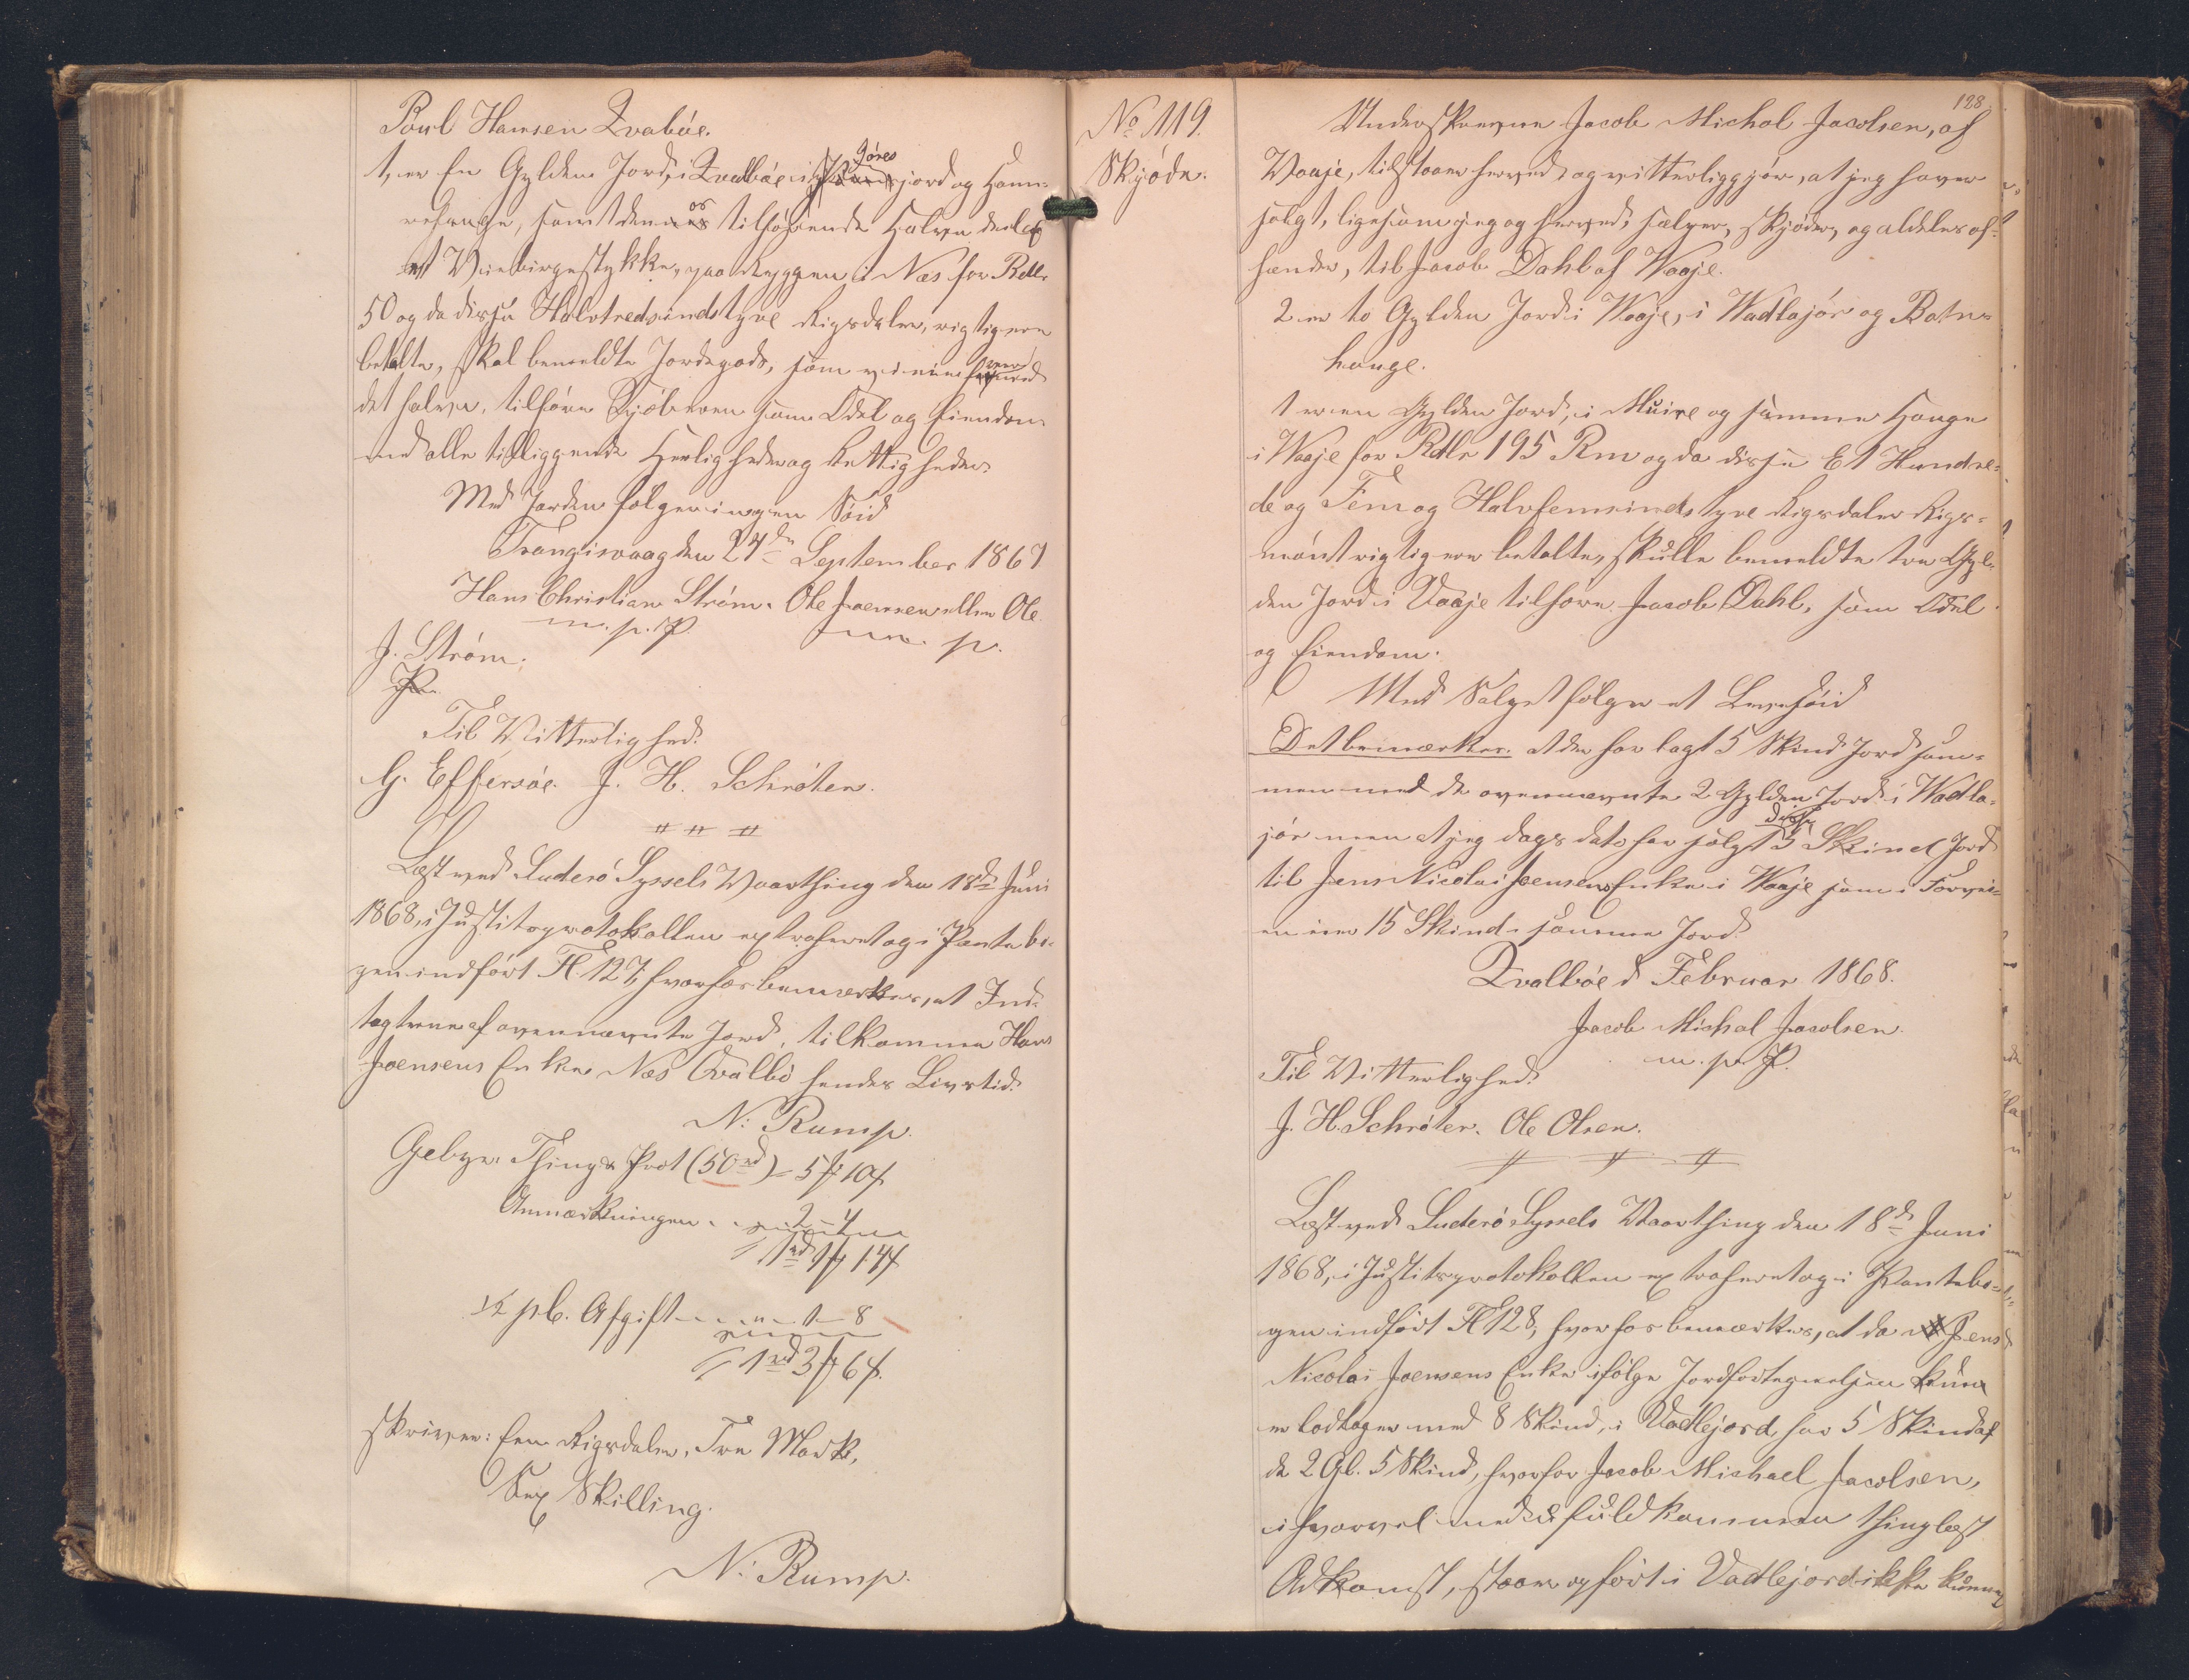 Poul Hansen Qvabøe.
1, er En Gylden Jord, i Qvalbøe i gøres jord og Ham-
rehauge, samt den os tilhørende Halve deel af
et Utebirgestykke, paa Ryggen i Næs for Rdlr
50 og da disse Halvtredsindstyve Rigsdaler, rigtig ere
betalte, skal bemeldte Jordegods, som vi nær
det halve, tilhøre Kjøberen som Odel og Eiendom
med alle tilliggende Herligheder og Rettigheder.
Med Jorden følger ingen Søid
Trangisvaag den 27de September 1867
Hans Christian Strøm. Ole Joensen eller Ole
m. p. P. m. p.
J. Strøm.
P.
Til Vitterlighed.
G. Effersøe. J. H. Schrøter.
Læst ved Suderø Syssels Vaarthing den 18de Juni
1868, i Justitsprotokollen extraheret og i Pantebo-
gen indført Fl. 127, hvorhos bemærkes, at Ind-
tægterne af ovennævnte Jord, tilkomme Hans
Joensens Enke Næs Qvalbø hendes Livstid.
N: Rump.
Gebyr. Thing & Prot (50rd) = 5 ₰ 10 ß
Anmærkningen - - 2 - 4
1rd 1 ₰ 14 ß
½ pC. Afgift - - - " - 1 - 8
1rd 3 ₰ 6 ß.
skriver: Een Rigsdaler, Tre Mark,
Sex Skilling.
N: Rump.
No 119.
Skjøde.
128
Underskrevne Jacob Michal Jacobsen, af
Vaaje, tilstaaer herved og vitterliggjør, at jeg haver
solgt, ligesom jeg og herved, sælger, skjøder, og aldeles af-
hænder, til Jacob Dahl af Waaje.
2 er to Gylden Jord i Waaje, i Wadlajør og Botn-
hauge.
1 er en Gylden Jord, i Muire og samme Hauge
i Waaje for Rdlr 195 Rm og da disse Et Hundre-
de og Fem og Halvfemsindstyve Rigsdaler Rigs-
mønt rigtig ere betalte, skulle bemeldte tre Gyl-
den Jord i Vaaje tilhøre Jacob Dahl, som Odel
og Eiendom.
Med Salget følger et Levesøid
Det bemærkes. at der har lagt 5 Skind Jord sam-
men med de ovennævnte 2 Gylden Jord i Wadla-
jør men at jeg dags dato har solgt disse 5 Skind Jord
til Jens Nicolai Joensens Enke i Waaje som i Forvei-
en eier 15 Skind i samme Jord.
Qvalbøe d Februar 1868.
Jacob Michal Jacobsen.
m. p. P.
Til Vitterlighed.
J. H. Schrøter. Ole Olsen.
Læst ved Suderø Syssels Vaarthing den 18de Juni
1868, i Justitsprotokollen extraheret og i Pantebo-
gen indført Fl 128, hvorhos bemærkes, at da Jens
Nicolai Joensens Enke ifølge Jordfortegnelsen kun
er lodtager med 8 Skind, i Vadlejord, har 5 Skind af
de 2 Gl. 5 Skind, hvorfor Jacob Michael Jacobsen,
i hvorvel med ufuldkommen thinglæst
Adkomst, staaer opført i Vadlejord ikke kunnet